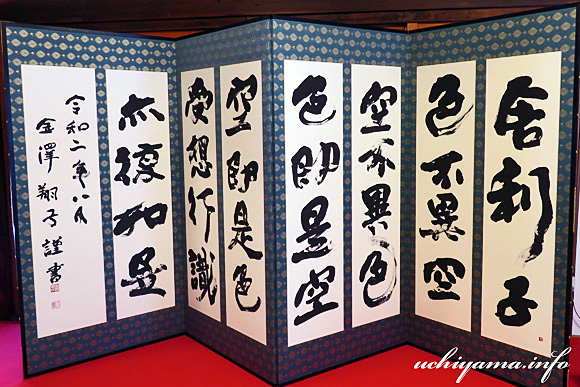 舎利子
色不異空
空不異色
色即是空
空即是色
受想行識
亦復如是
令和二年八月
金澤翔子謹書
uchiyama.info